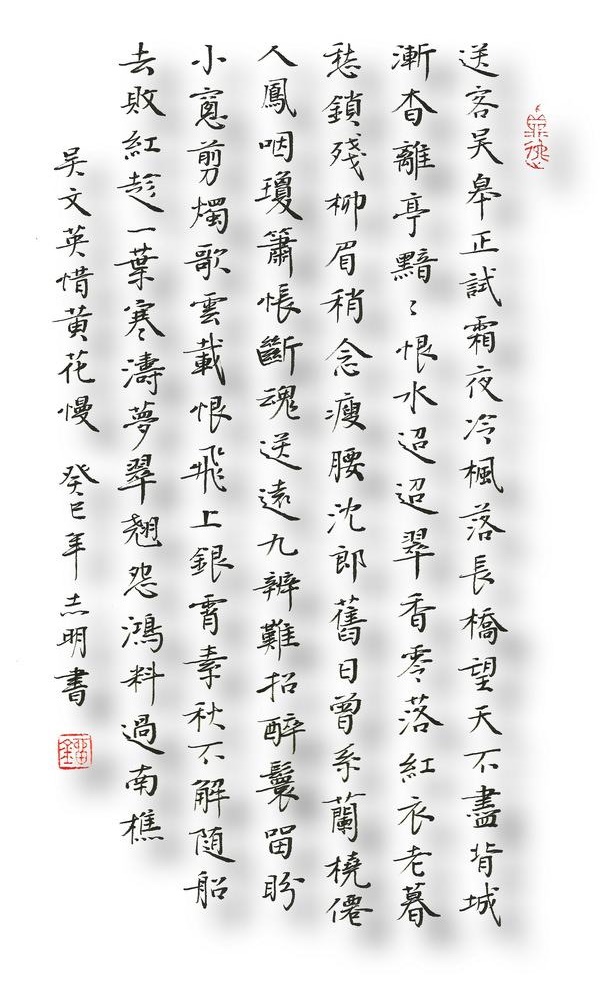 送客吴皋正試霜夜冷楓落長橋望天不盡背城
漸杳離亭黯〻恨水迢迢翠香零落紅衣老暮
愁鎖殘柳眉稍念瘦腰沈郎舊日曾系蘭橈僊
人鳳咽瓊簫悵斷魂送遠九辨難招醉鬟留盼
小窻剪燭歌雲載恨飛上銀霄素秋不解随船
去敗紅趁一葉寒濤夢翠翹怨鴻料過南樵
吴文英惜黄花慢 癸巳年志明書